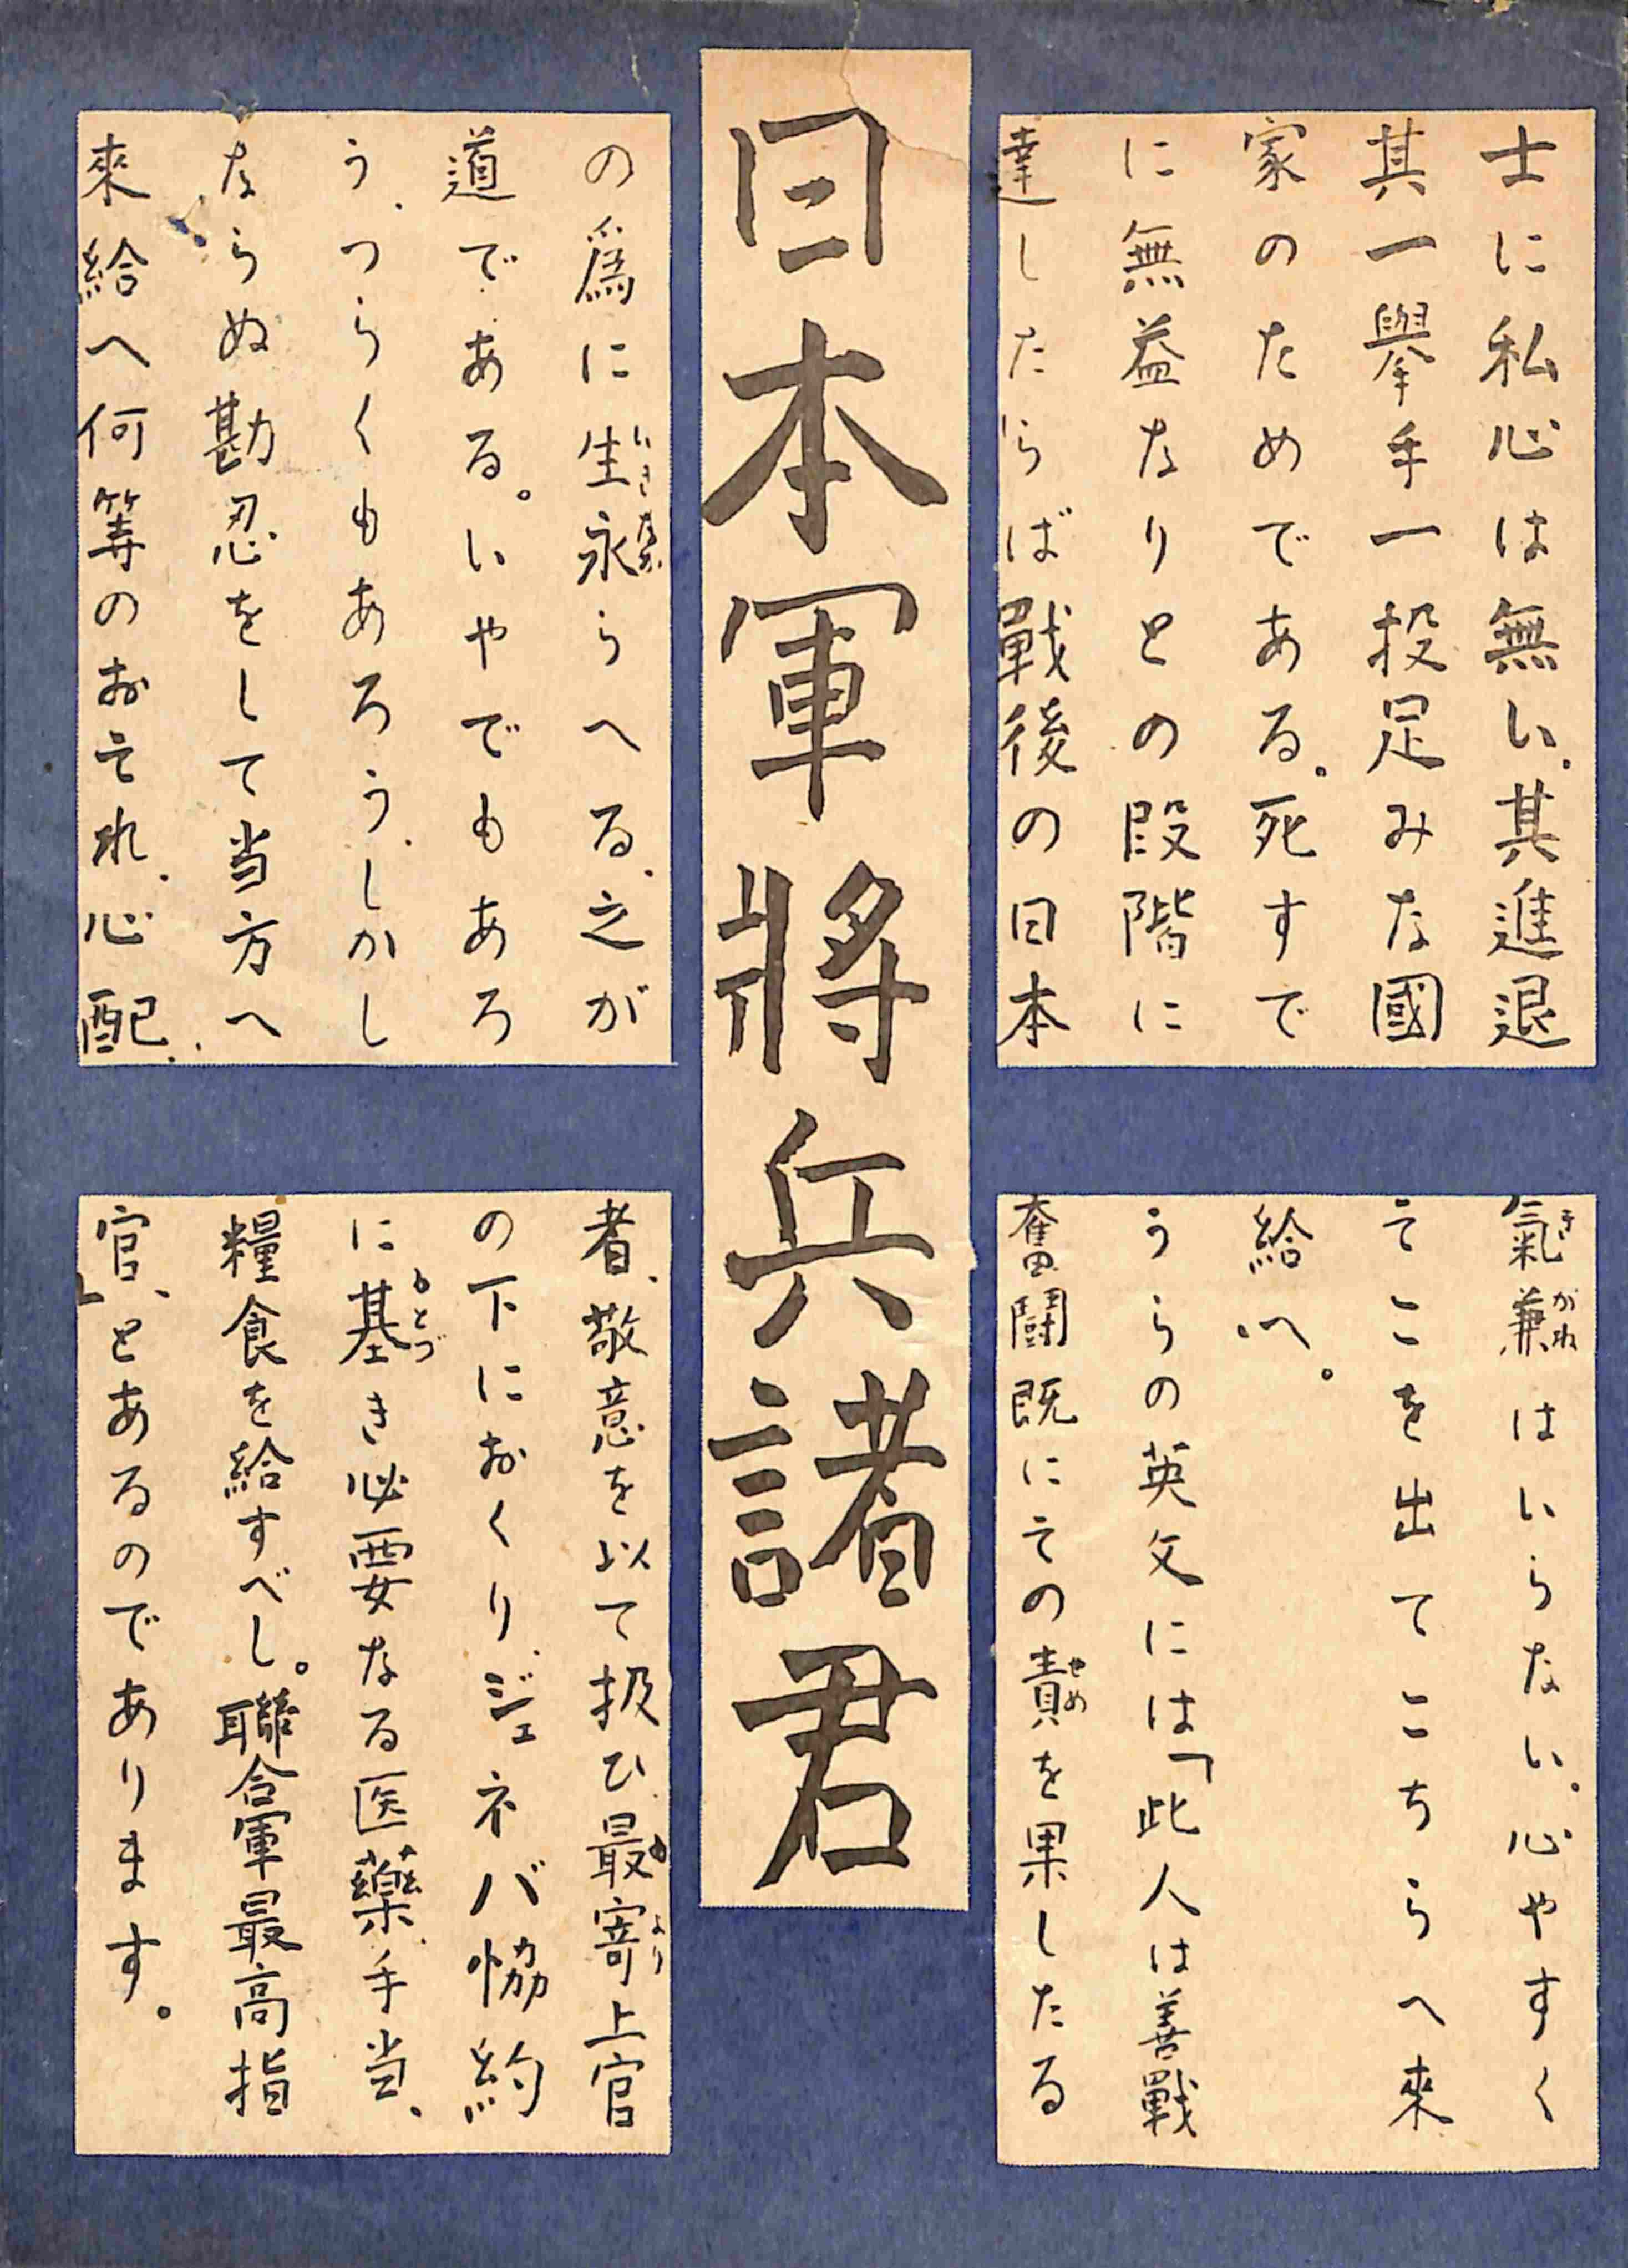 日本軍將兵諸君
士に私心は無い。其進退
其一擧手一投足みな國
家のためである。死すで
に無益なりとの段階に
達したらば戰後の日本
の爲に生永らへる、之が
道である。いやでもあろ
う、つらくもあろう、しかし
ならぬ勘忍をして当方へ
來給へ何等のおそれ、心配、
氣兼はいらない。心やすく
そこを出てこちらへ來
給へ。
うらの英文には「此人は善戰
奮闘既にその責を果したる
者、敬意を以て扱ひ最寄上官
の下におくり、ジェネバ恊約
に基き必要なる医藥、手当、
糧食を給すべし。聯合軍最高指
官」とあるのであります。